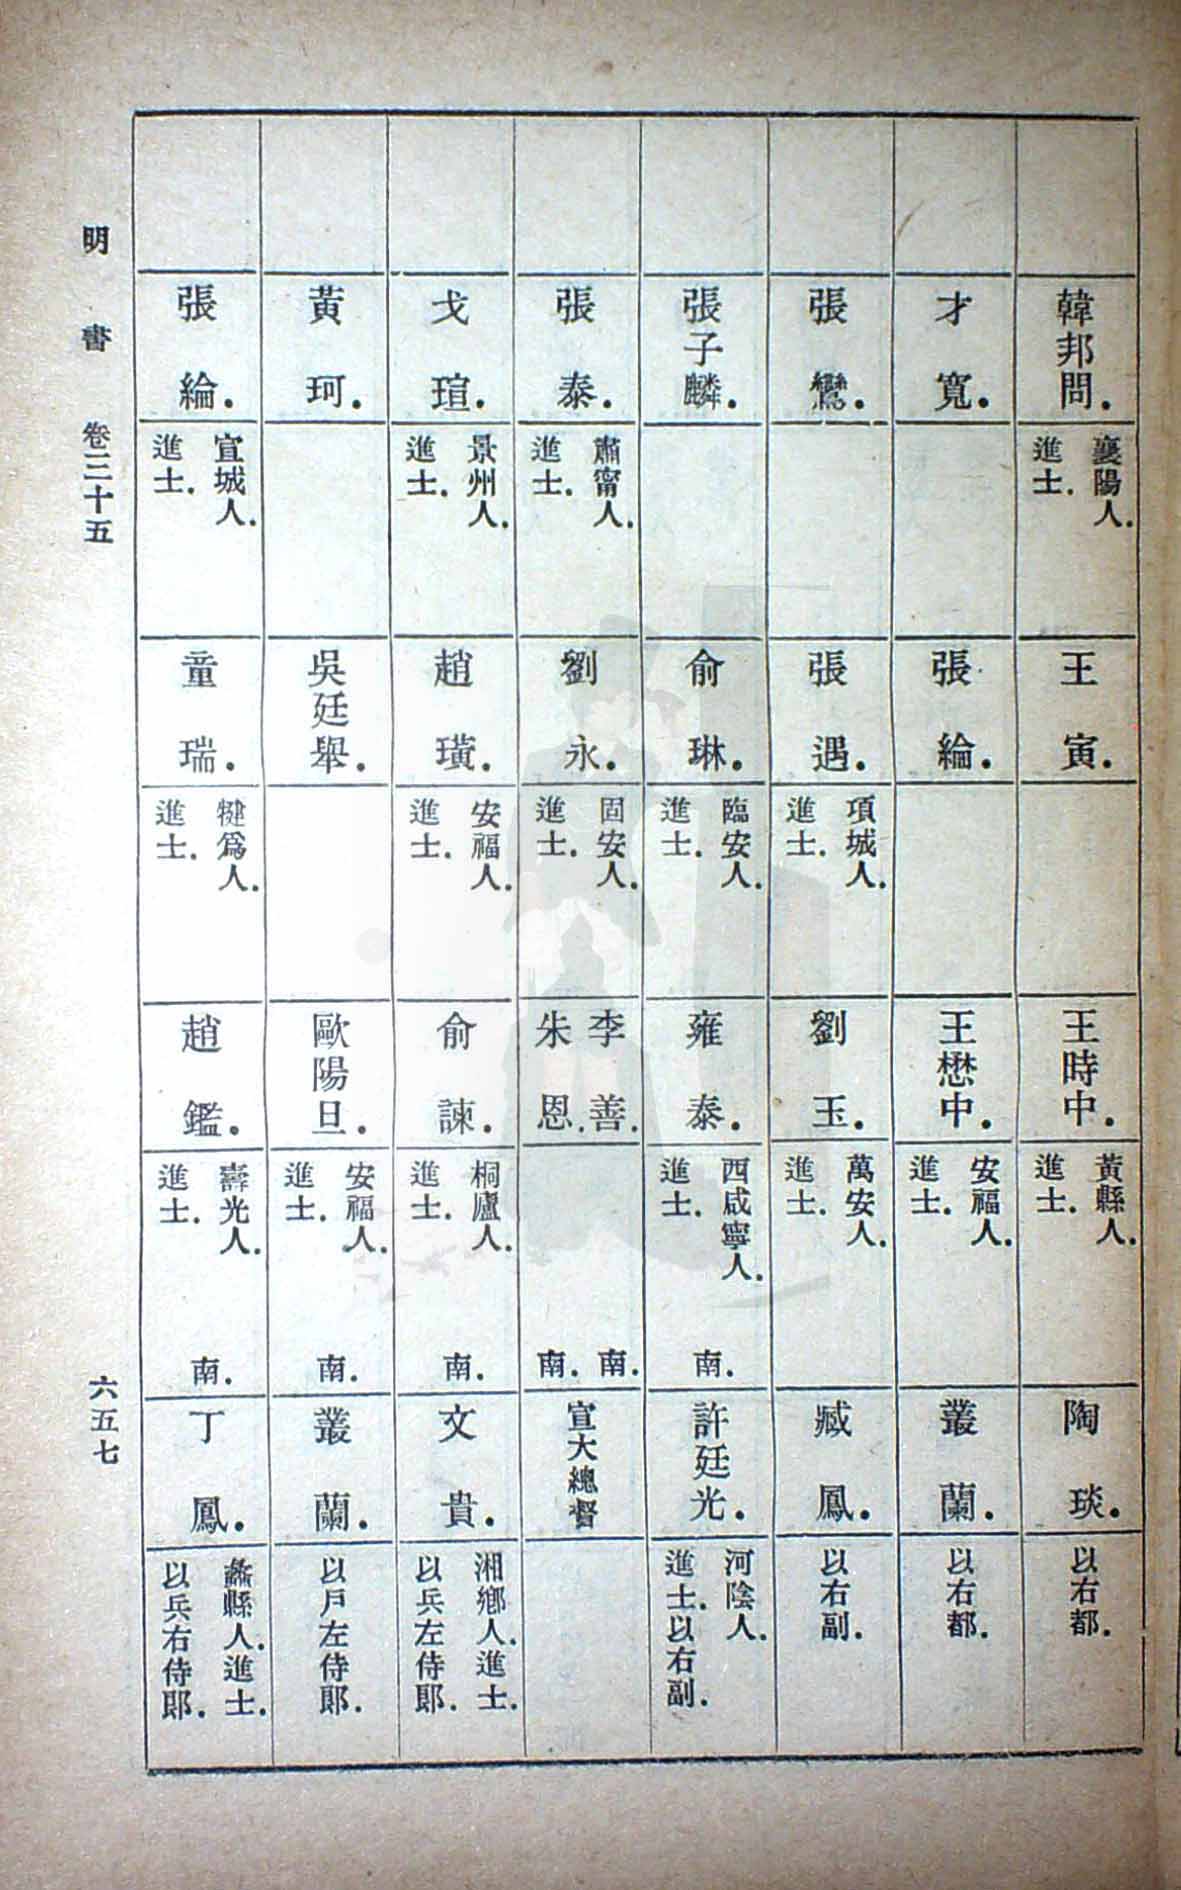 韓邦問．
襄陽人．
進士．
王寅．
王時中．
黃縣人．
進士．
陶琰．
以右都．
才寬．
張綸．
王懋中．
安福人．
進士．
叢蘭．
以右都．
張鸞．
張遇．
項城人．
進士．
劉玉．
萬安人．
進士．
臧鳳．
以右副．
張子麟．
俞琳．
臨安人．
進士．
雍泰．
西咸寧人．
進士．
南．
許廷光．
河陰人．
進士．以右副．
張泰．
肅甯人．
進士．
劉永．
固安人．
進士．
李善．
朱恩．
南．
南．
宣大總督
戈瑄．
景州人．
進士．
趙璜．
安福人．
進士．
俞諫．
桐廬人．
進士．
南．
文貴．
湘鄉人．進士．
以兵左侍郎．
黃珂．
吳廷舉．
歐陽旦．
安福人．
進士．
南．
叢蘭．
以戶左侍郎．
張綸．
宣城人．
進士．
童瑞．
犍爲人．
進士．
趙鑑．
壽光人．
進士．
南．
丁鳳．
蠡縣人．進士．
以兵右侍郎．
明書 卷三十五
六五七